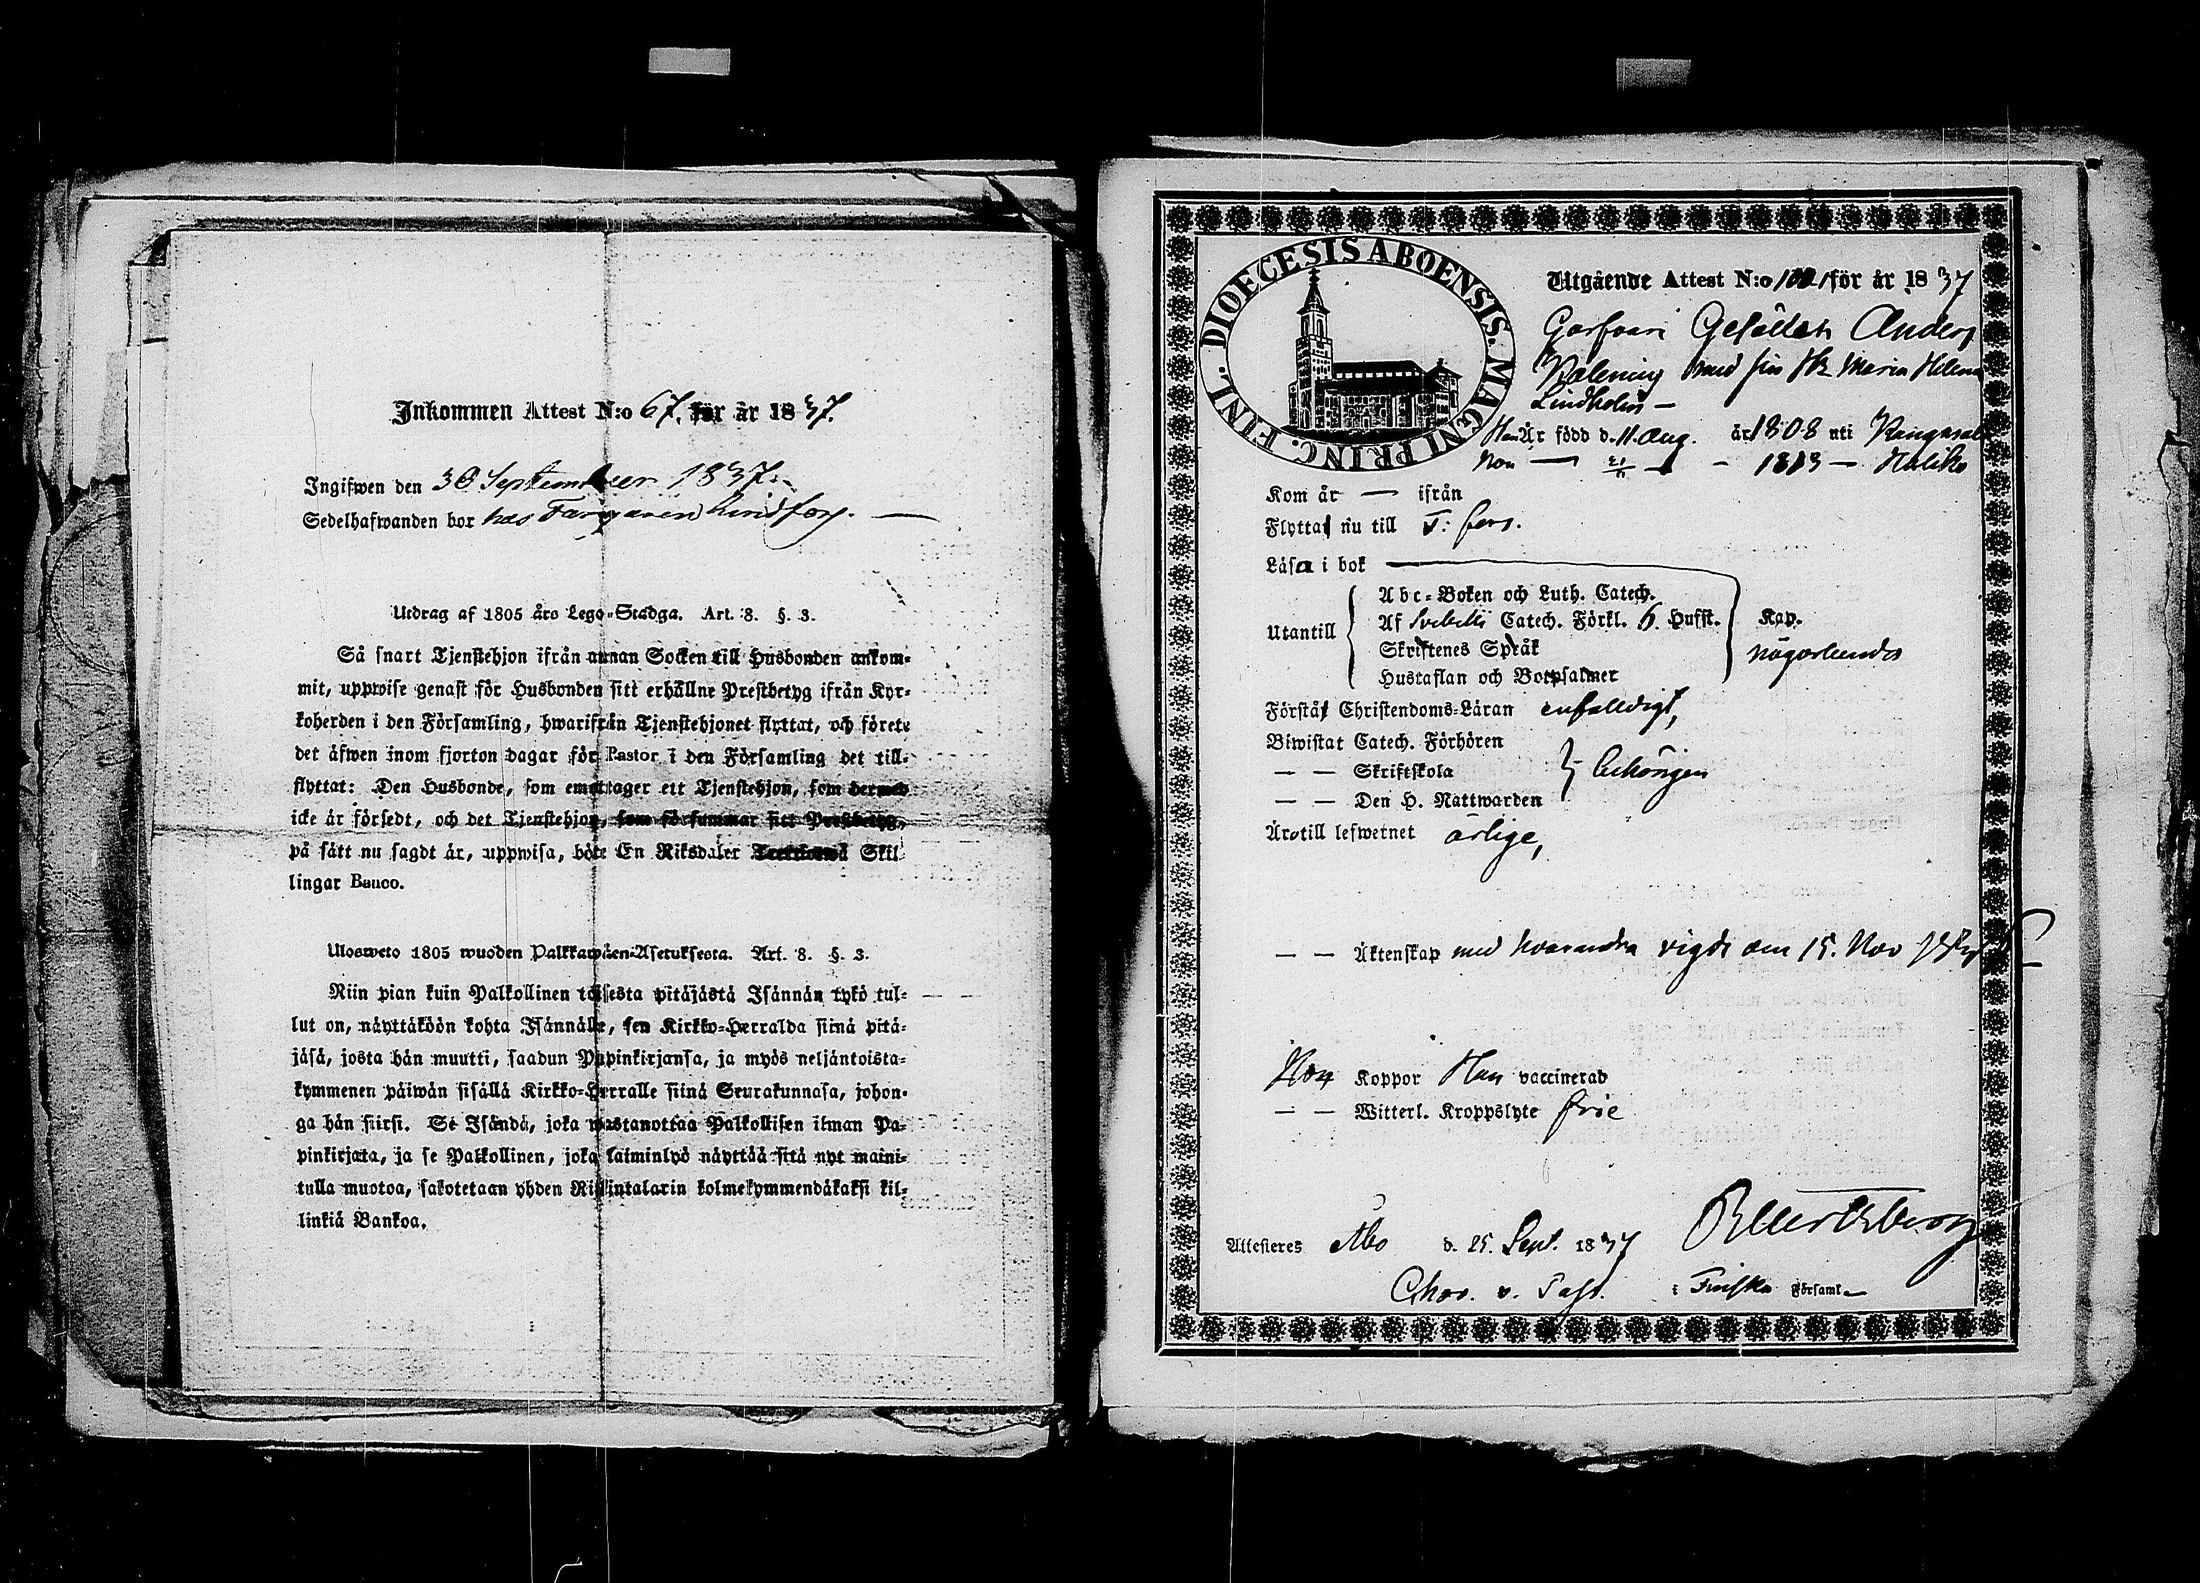 Inkommen Attest N:o 67. för år 1837.
Ingifwen den 30 September 1837.
Sedelhafwanden bor hos Färgaren Lindfors. —
Utdrag af 1805 års Lego-Stadga. Art. 8. §. 3.
Så snart Tjenstehjon ifrån annan Socken till Husbonden ankom-
mit, uppwise genast för Husbonden sitt erhållne Prestbetyg ifrån Kyr-
koherden i den Församling, hwarifrån Tjenstehjonet flyttat, och förete
det äfwen inom fjorton dagar för Pastor i den Församling det till-
flyttat: Den Husbonde, som emottager ett Tjenstehjon, som dermed
icke är försedt, och det Tjenstehjon, som försummar sitt Prestbetyg,
på sätt nu sagdt är, uppwisa, böte En Riksdaler Trettiotwå Skil-
lingar Banco.
Ulosweto 1805 wuoden Palkkawäen-Asetuksesta. Art. 8. §. 3.
Niin pian kuin Palkollinen toisesta pitäjästä Isännän tykö tul-
lut on, näyttäköön kohta Isännälle, sen Kirkko-Herralda siinä pitä-
jäsä, josta hän muutti, saadun Papinkirjansa, ja myös neljäntoista-
kymmenen päiwän sisällä Kirkko-Herralle siinä Seurakunnasa, johon-
ga hän siirsi. Se Isändä, joka wastanottaa Palkollisen ilman Pa-
pinkirjata, ja se Palkollinen, joka laiminlyö näyttää sitä nyt maini-
tulla muotoa, sakotetaan yhden Riksintalarin kolmekymmendäkaksi kil-
linkiä Bankoa.
DIOECESIS ABOENSIS. MAGNI PRINC. FINL.
Utgående Attest N:o för år 1837
Garfvari Gesällen Anders
med sin H Maria Helena
Lindholm —
Han Är född d. 11. Aug. år 1808 uti Kangasala
Hon — — 1813 — Haliko
Kom år — ifrån
Flyttar nu till T: fors.
Läsa i bok
Utantill
Abc-Boken och Luth. Catech.
Af Svebelii Catech. Förkl. 6. Hufst. Kap.
Skriftenes Språk någorlunda
Hustaflan och Botpsalmer
Förstår Christendoms-Läran enfalldigt,
Biwistat Catech. Förhören
— — Skriftskola behörigen
— — Den H. Nattwarden
Äro till lefwernet ärlige,
— — Äktenskap med hvarandra vigde den 15. Nov
Hon Koppor Han vaccinerad
— — Witterl. Kroppslyte frie
Attesteres Åbo d. 25. Sept. 1837
v. Past. i Finska Församl.